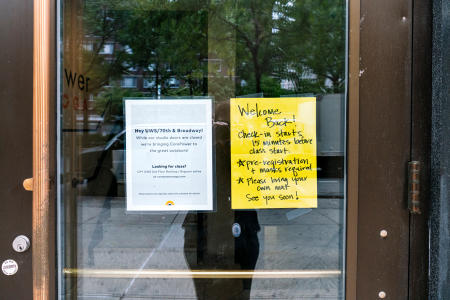 wer
Hey UWS/70th & Broadway!
While our studio doors are closed
we're bringing CorePower to
the great outdoors!
Looking for class?
Welcome
Back!
Check-in starts
15 minutes before
class start
* pre-registration
+ masks required
* Please bring your
own mat
See you soon!